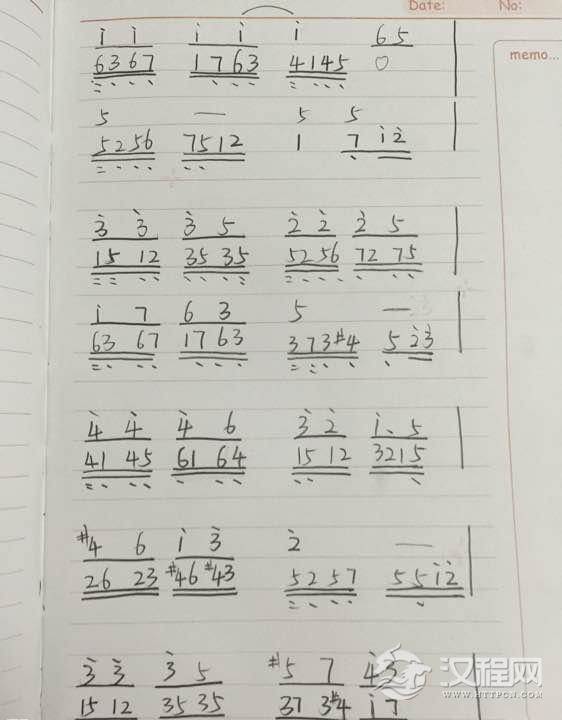 Date: No:
memo...
i i i i i 6 5
6367 1763 4145 0
5 — 5 5
5256 7512 1 7 i2
3 3 3 5 2 2 2 5
15 12 35 35 52 56 72 75
i 7 6 3 5 —
63 67 17 63 373#4 5 23
4 4 4 6 3 2 i. 5
41 45 61 64 15 12 3215
#4 6 i 3 2 —
26 23 #46 #43 5257 55i2
3 3 3 5 #5 7 43
15 12 35 35 37 3#4 i7
汉程网
WWW.HTTPCN.COM